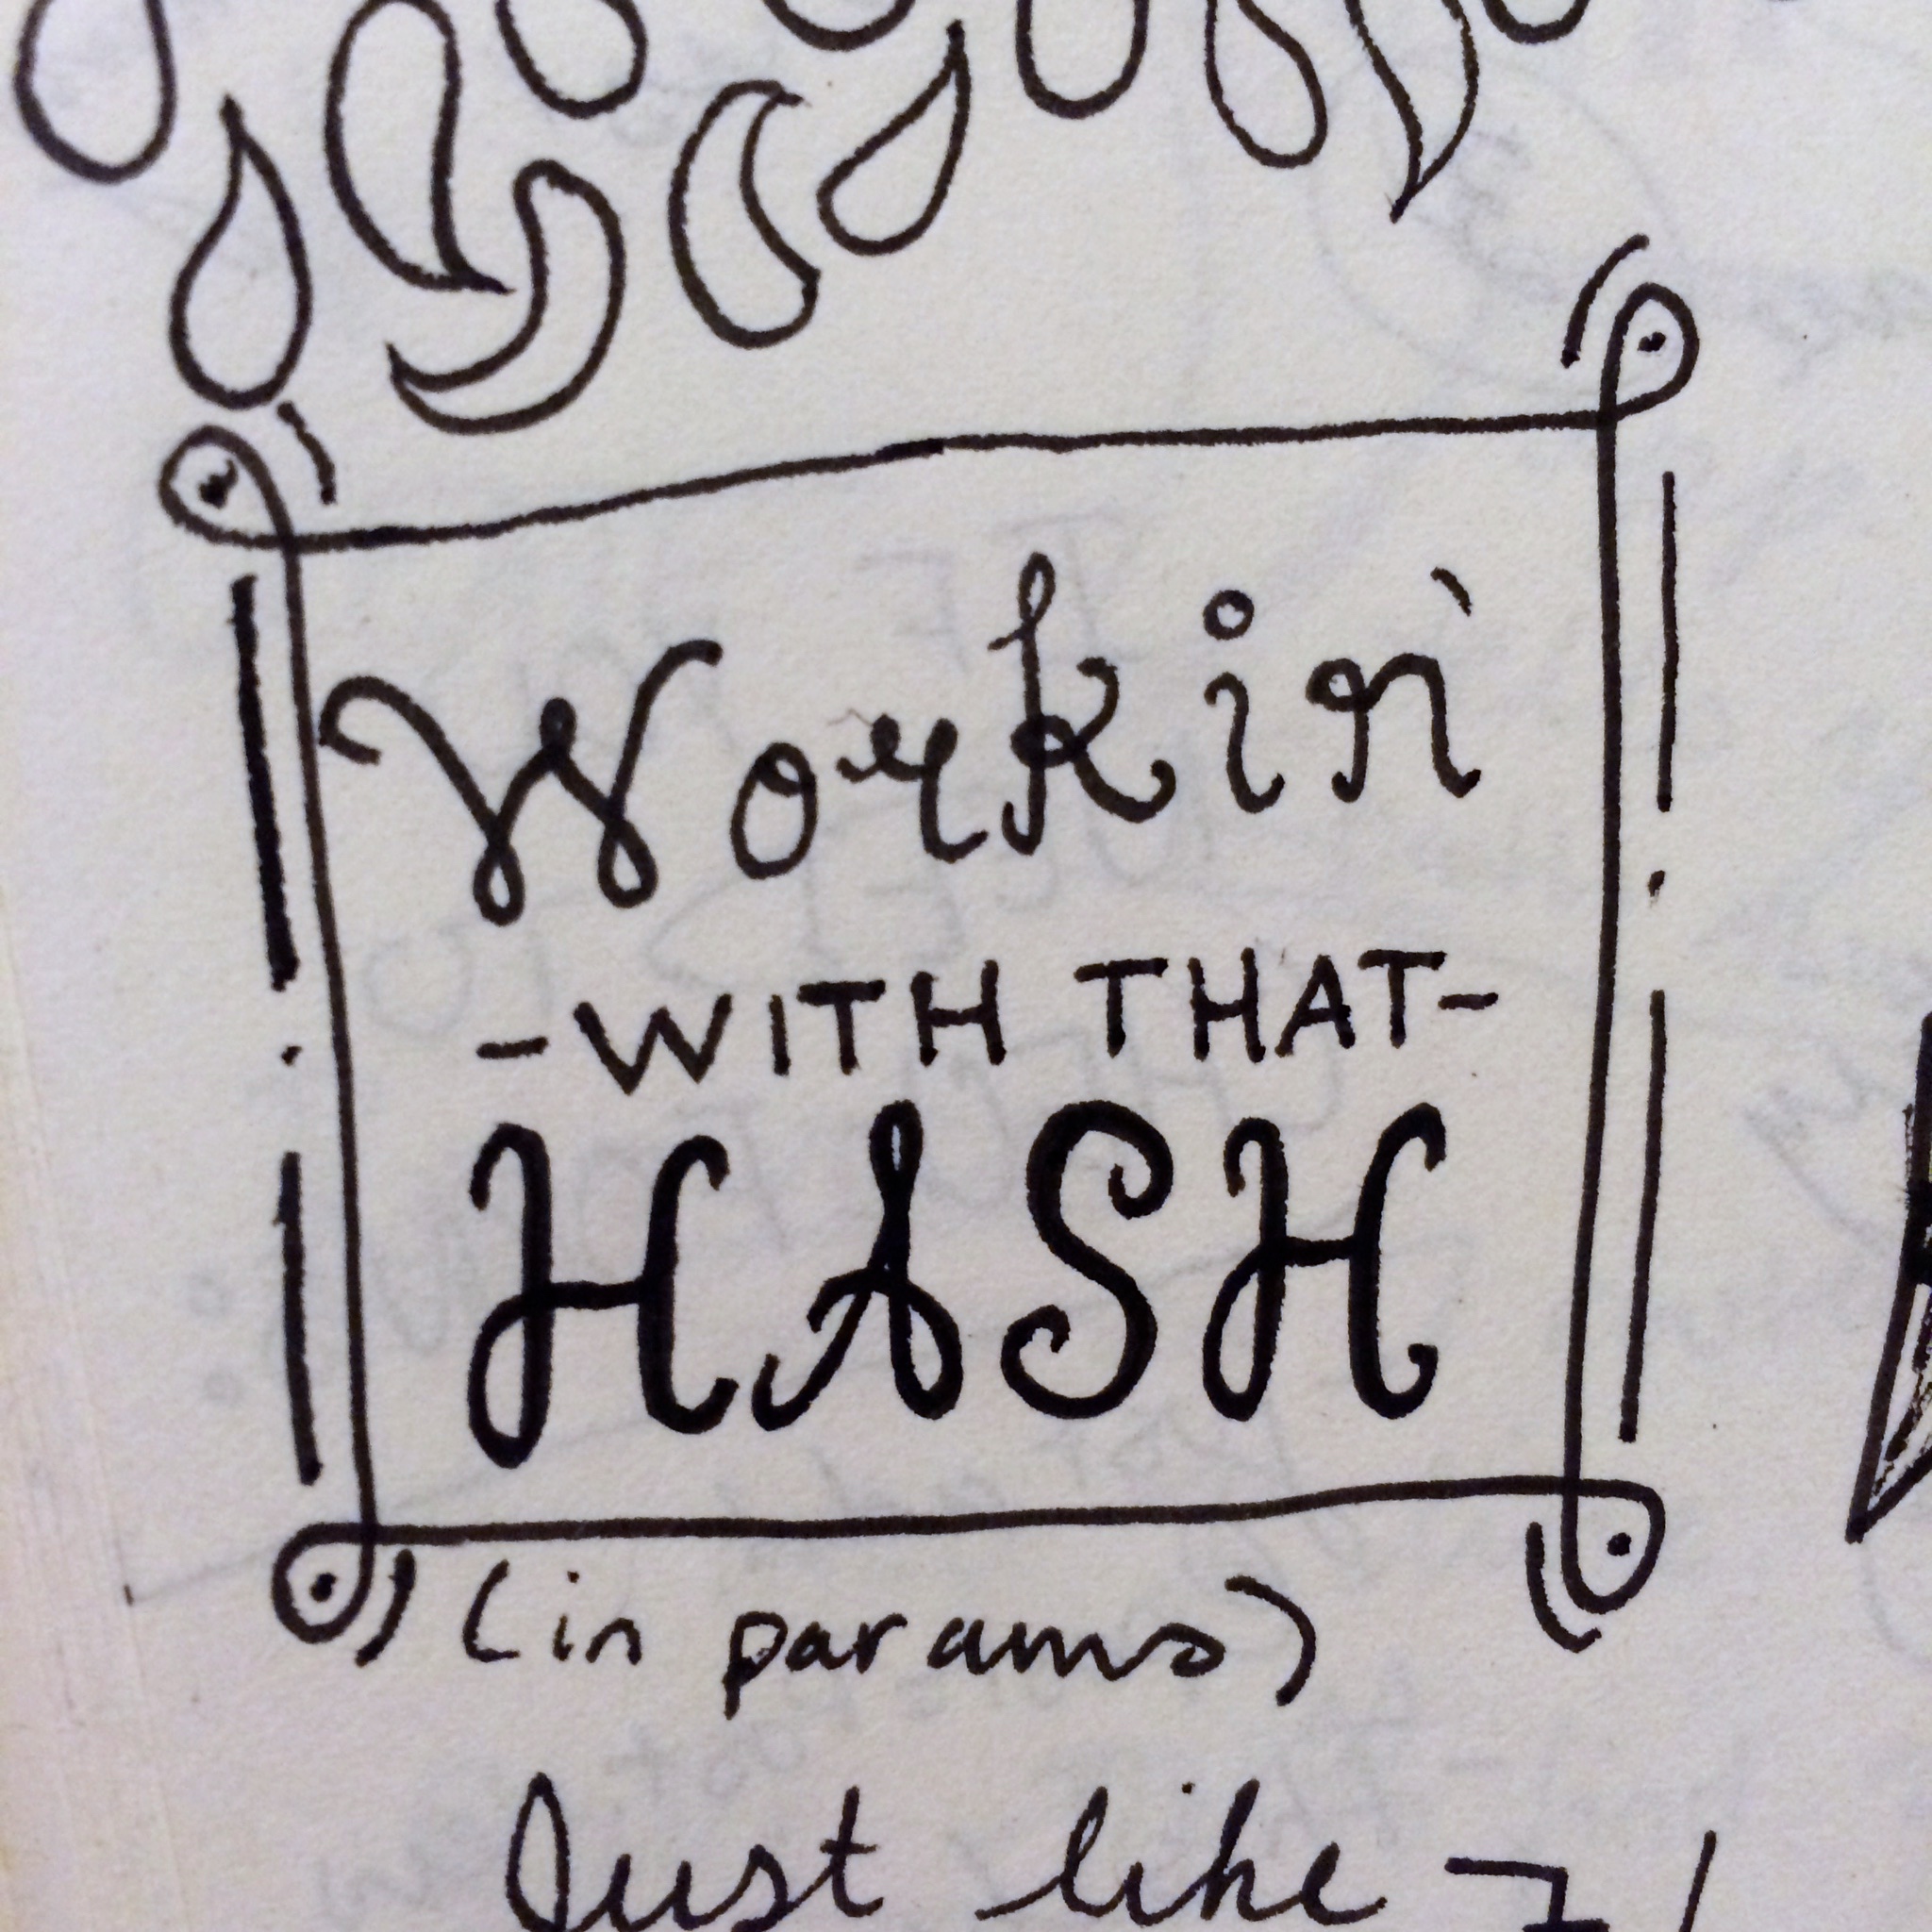 Workin'
-WITH THAT-
HASH
(in params)
Just like